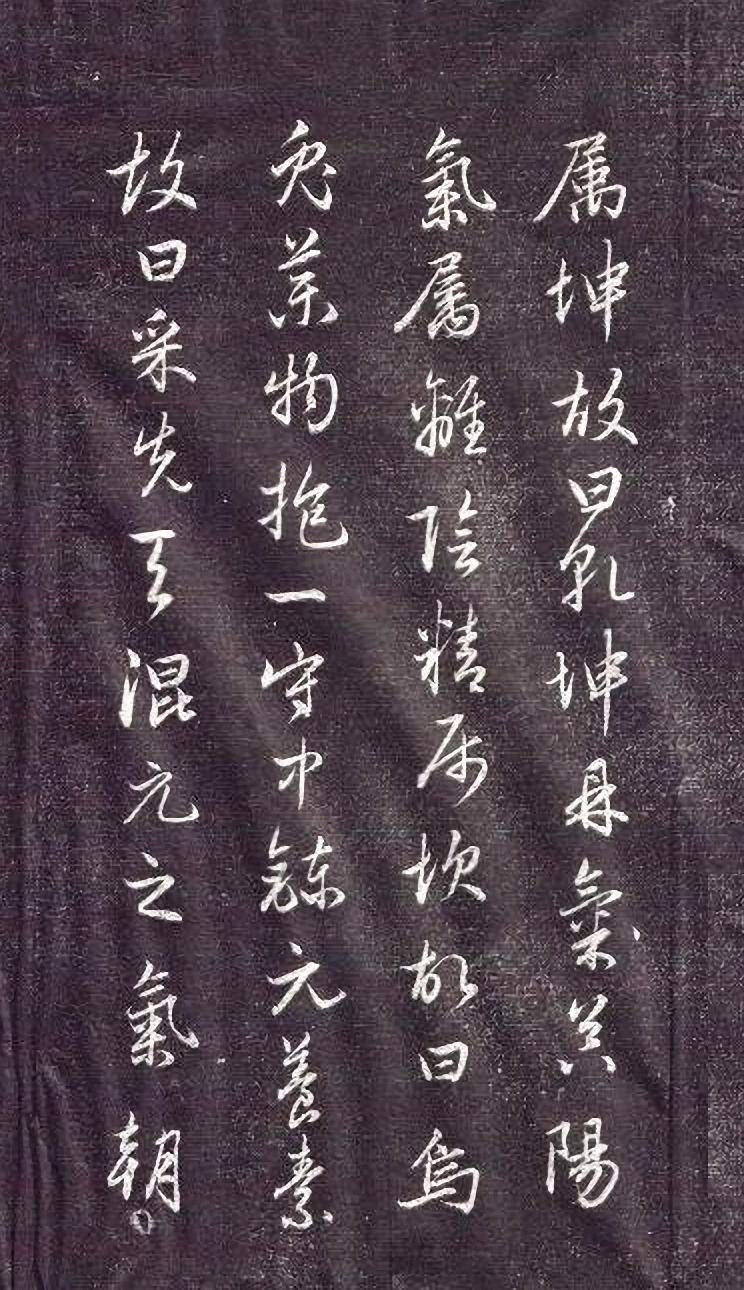 属坤故曰乾坤鼎氣其陽
氣属離陰精属坎故曰烏
兔藥物抱一守中錬元養素
故曰采先天混元之氣朝